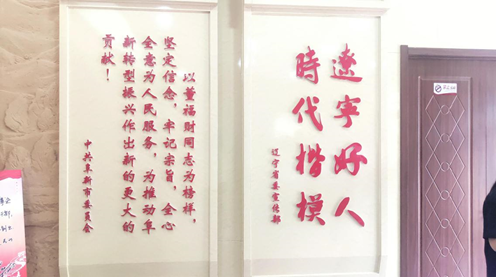 以董福财同志为榜样，
坚定信念，牢记宗旨，全心
全意为人民服务，为推动阜
新转型振兴作出新的更大的
贡献！
中共阜新市委员会
遼宁好人
時代楷模
辽宁省委宣传部